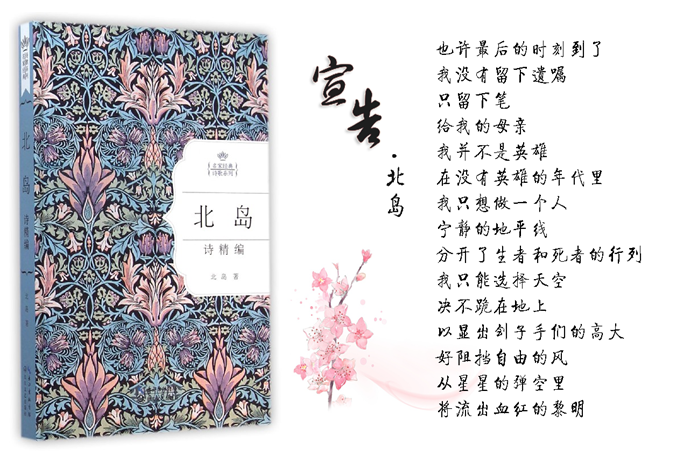 北
岛
诗精编
北岛 著
名家经典
诗歌系列
北 岛
诗精编
北岛 著
宣告
·北岛
也许最后的时刻到了
我没有留下遗嘱
只留下笔
给我的母亲
我并不是英雄
在没有英雄的年代里
我只想做一个人
宁静的地平线
分开了生者和死者的行列
我只能选择天空
决不跪在地上
以显出刽子手们的高大
好阻挡自由的风
从星星的弹空里
将流出血红的黎明